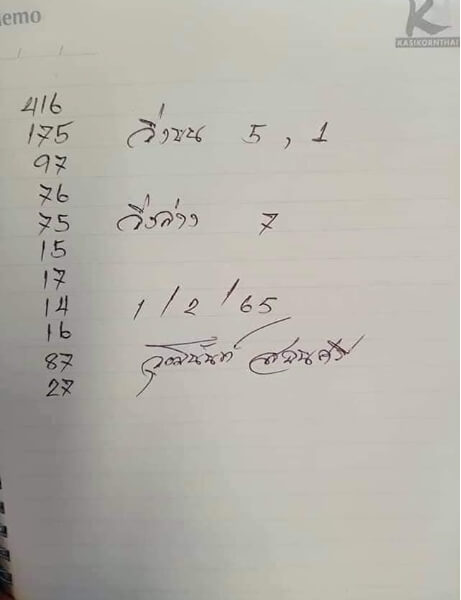 memo
KASIKORNTHAI
416
175 วิ่งบน 5 , 1
97
76
75 วิ่งล่าง 7
15
17
14 1 / 2 / 65
16
87
27